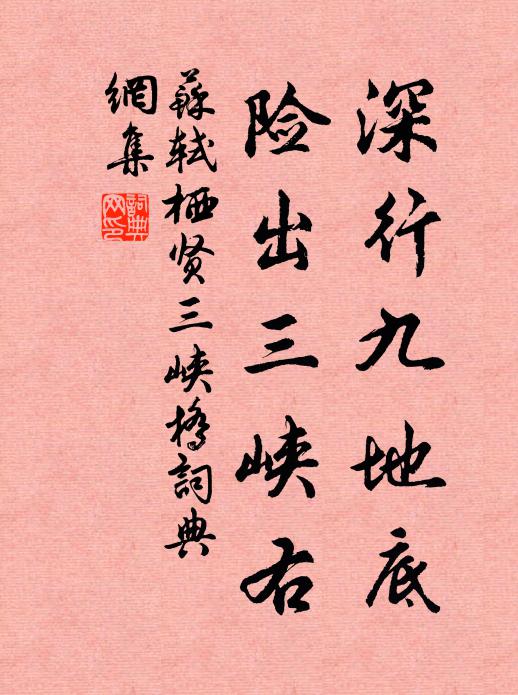 深行九地底
险出三峡右
蘇轼栖贤三峡橋詞典
網集
詞典
网印